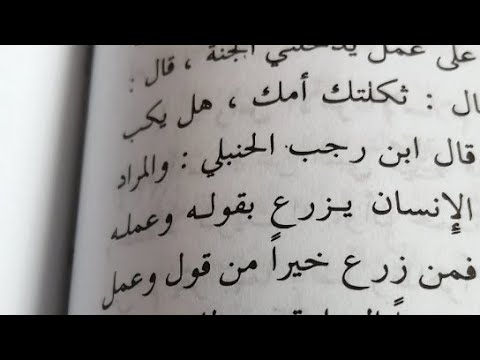 على عمل يدخلني الجنة ، قال :
ال : ثكلتك أمك ، هل يكب
قال ابن رجب الحنبلي : والمراد
الإنسان يـزرع بقولـه وعملـه
فمن زرع خيراً من قول وعمل